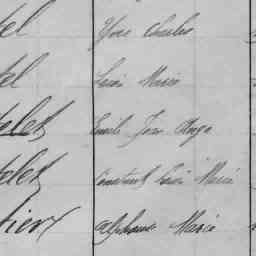 tel Yves Charles
tel Louis Marie
telet Emile Jean Ange
telet Constant Louis Marie
tier Alphonse Marie